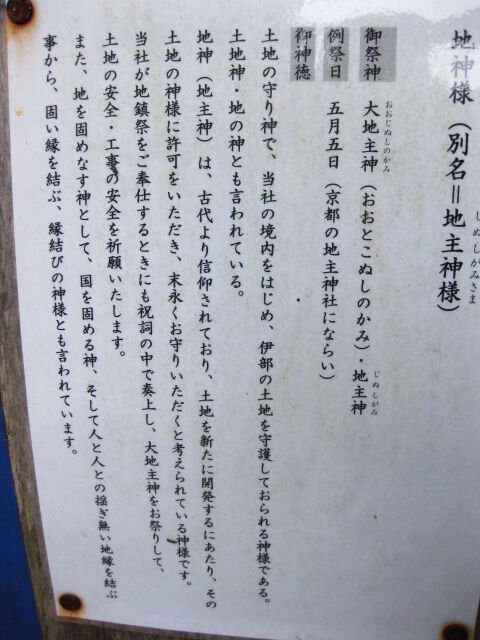 地神様（別名＝地主神様）
じぬしがみさま
御祭神　大地主神（おおとこぬしのかみ）・地主神
おおじぬしのかみ
じぬしがみ
例祭日　五月五日（京都の地主神社にならい）
御神徳
土地の守り神で、当社の境内をはじめ、伊部の土地を守護しておられる神様である。
土地神・地の神とも言われている。
地神（地主神）は、古代より信仰されており、土地を新たに開発するにあたり、その
土地の神様に許可をいただき、末永くお守りいただくと考えられている神様です。
当社が地鎮祭をご奉仕するときにも祝詞の中で奏上し、大地主神をお祭りして、
土地の安全・工事の安全を祈願いたします。
また、地を固めなす神として、国を固める神、そして人と人との揺ぎ無い地縁を結ぶ
事から、固い縁を結ぶ、縁結びの神様とも言われています。